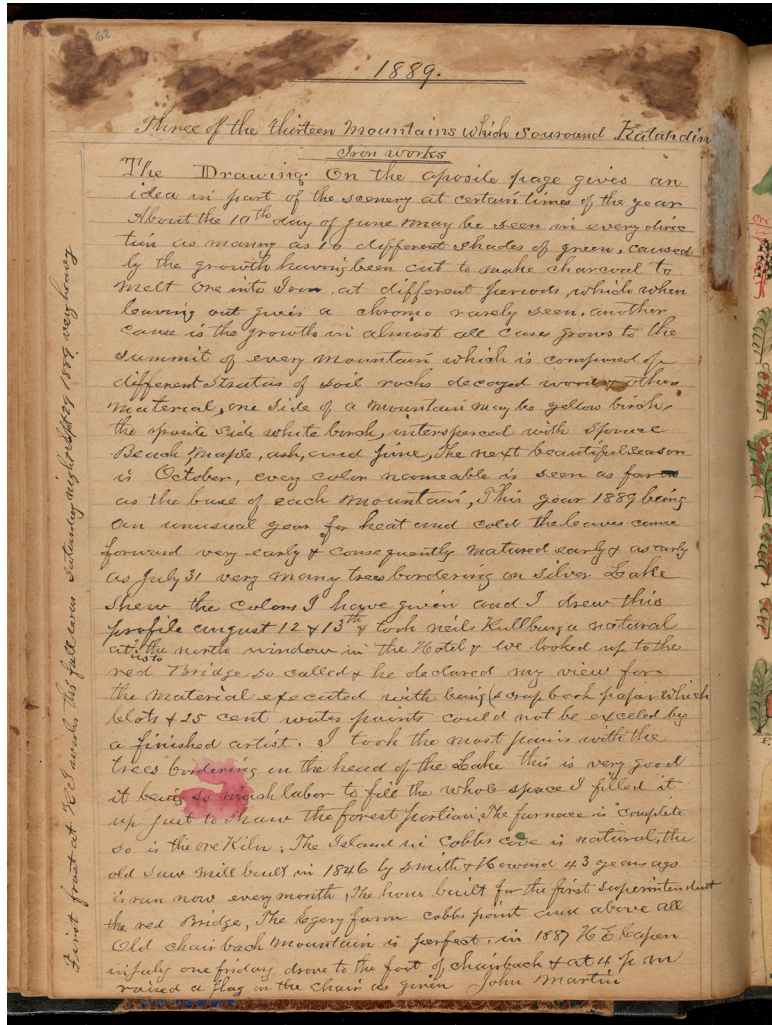 62
1889.
Three of the thirteen Mountains which souround Katahdin
Iron works
The Drawing. On the aposite page gives an
idea in part of the scenery at certain times of the year
About the 10th day of June may be seen in every direc
tion as manny as 10 different shades of green, caused
by the growth having been cut to make charcoal to
melt ore into Iron at different periods, which when
leaving out gives a chromo rarely seen. another
cause is the growth in almost all cases grows to the
summit of every Mountain which is composed of
different stratas of soil rocks decayed wood & other
material, one side of a mountain may be yellow birch,
the oposite side white birch, intersperced with Spruce
Beach, Maple, ash, and pine, The next beautiful season
is October, every color nameable is seen as far
as the base of each Mountain, This year 1889 being
an unusual year for heat and cold the leaves came
forward very early & consequently matured early & as early
as July 31 very many trees bordering on Silver Lake
shew the colors I have given and I drew this
profile august 12 & 13th & took neil Kullburg a natural
artist to the north window in the Hotel & we looked up to the
red Bridge so called & he declared my view for
the material executed with being (scrap book paper which
blots & 25 cent water paints could not be exceled by
a finished artist. I took the most pains with the
trees bordering on the head of the Lake this is very good
it being so much labor to fill the whole space I filled it
up just to shaw the forest portion, The furnace is complete
so is the ore Kiln. The Island in cobbs cove is natural, the
old saw mill built in 1846 by Smith & Howard 43 years ago
is run now every month, The hous built for the first superintendant
the red Bridge, The farm cobbs point and above all
Old chairback Mountain is perfect. in 1887 H E Capen
in july one friday drove to the foot of chairback & at 4 p m
raised a flag in the chair as given John Martin
First frost at K I works this fall was Saturday night Sept 29 1889 very heavy